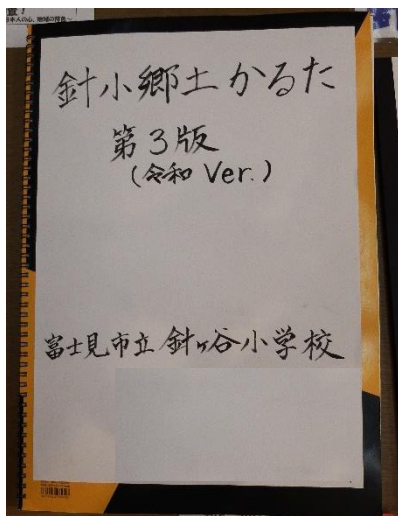 針小郷土かるた
第3版
(令和 Ver.)
富士見市立 針ヶ谷小学校